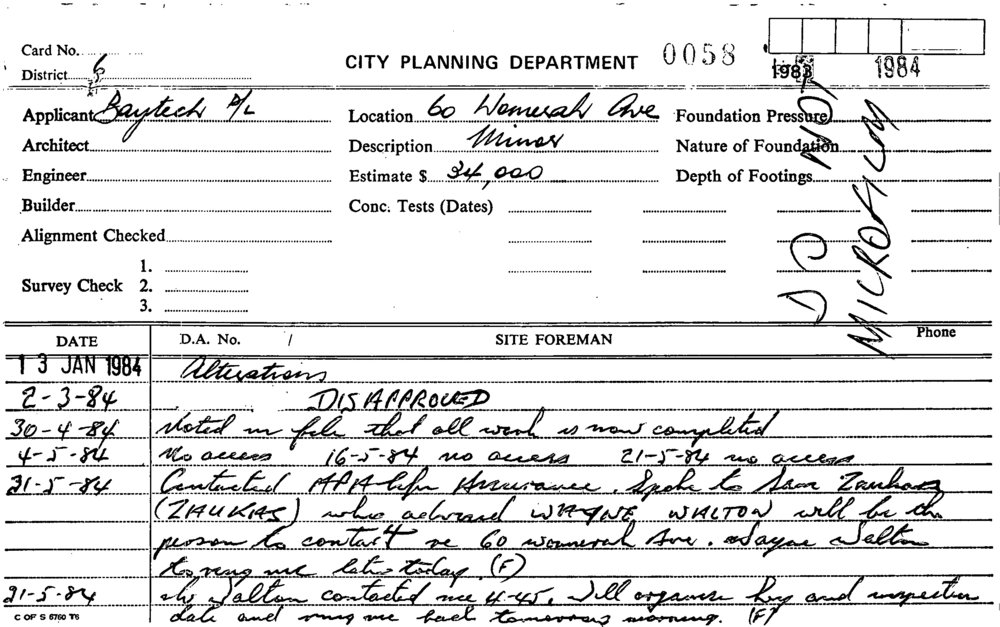 Card No.
District 6
CITY PLANNING DEPARTMENT 0058
1983 1984
Applicant Baytech P/L
Location 60 Womerah Ave
Foundation Pressure
Architect
Description Minor
Nature of Foundation
Engineer
Estimate $ 34,000
Depth of Footings
Builder
Conc. Tests (Dates)
Alignment Checked
Survey Check 1.
2.
3.
DO NOT
MICROFILM
DATE D.A. No. / SITE FOREMAN Phone
13 JAN 1984 Alterations
2-3-84 DISAPPROVED
30-4-84 Noted in file that all work is now completed
4-5-84 No access 16-5-84 no access 21-5-84 no access
21-5-84 Contacted APA Life Assurance. Spoke to Sam
(ZIAUKAS) who advised WAYNE WALTON will be the
person to contact re 60 womerah Ave. Wayne Walton
to ring me later today. (F)
21-5-84 Mr Walton contacted me 4-45. Will organise key and inspection
date and ring me back tomorrow morning. (F)
C OF S 6760 T6